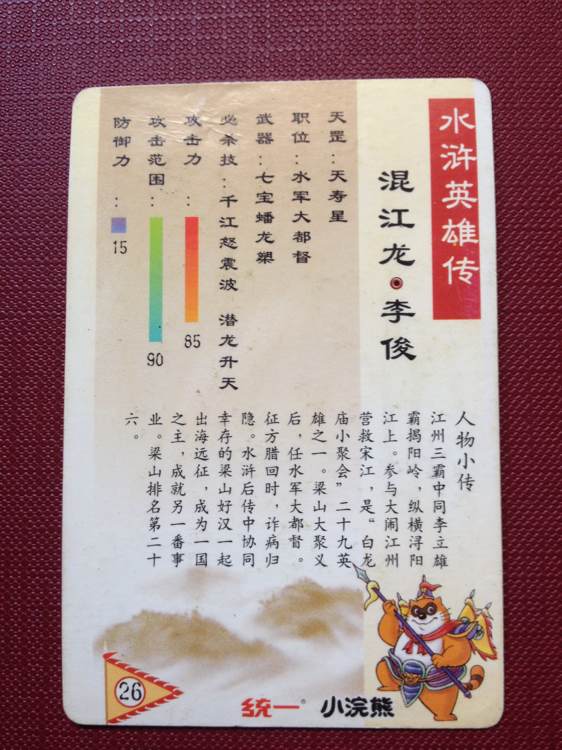 水浒英雄传
混江龙·李俊
天罡：天寿星
职位：水军大都督
武器：七宝蟠龙槊
必杀技：千江怒震波 潜龙升天
攻击力：
85
攻击范围：
90
防御力：
15
人物小传
江州三霸中同李立雄
霸揭阳岭，纵横浔阳
江上。参与大闹江州
营救宋江，是“白龙
庙小聚会”二十九英
雄之一。梁山大聚义
后，任水军大都督。
征方腊回时，诈病归
隐。水浒后传中协同
幸存的梁山好汉一起
出海远征，成为一国
之主，成就另一番事
业。梁山排名第二十
六。
26
统一® 小浣熊